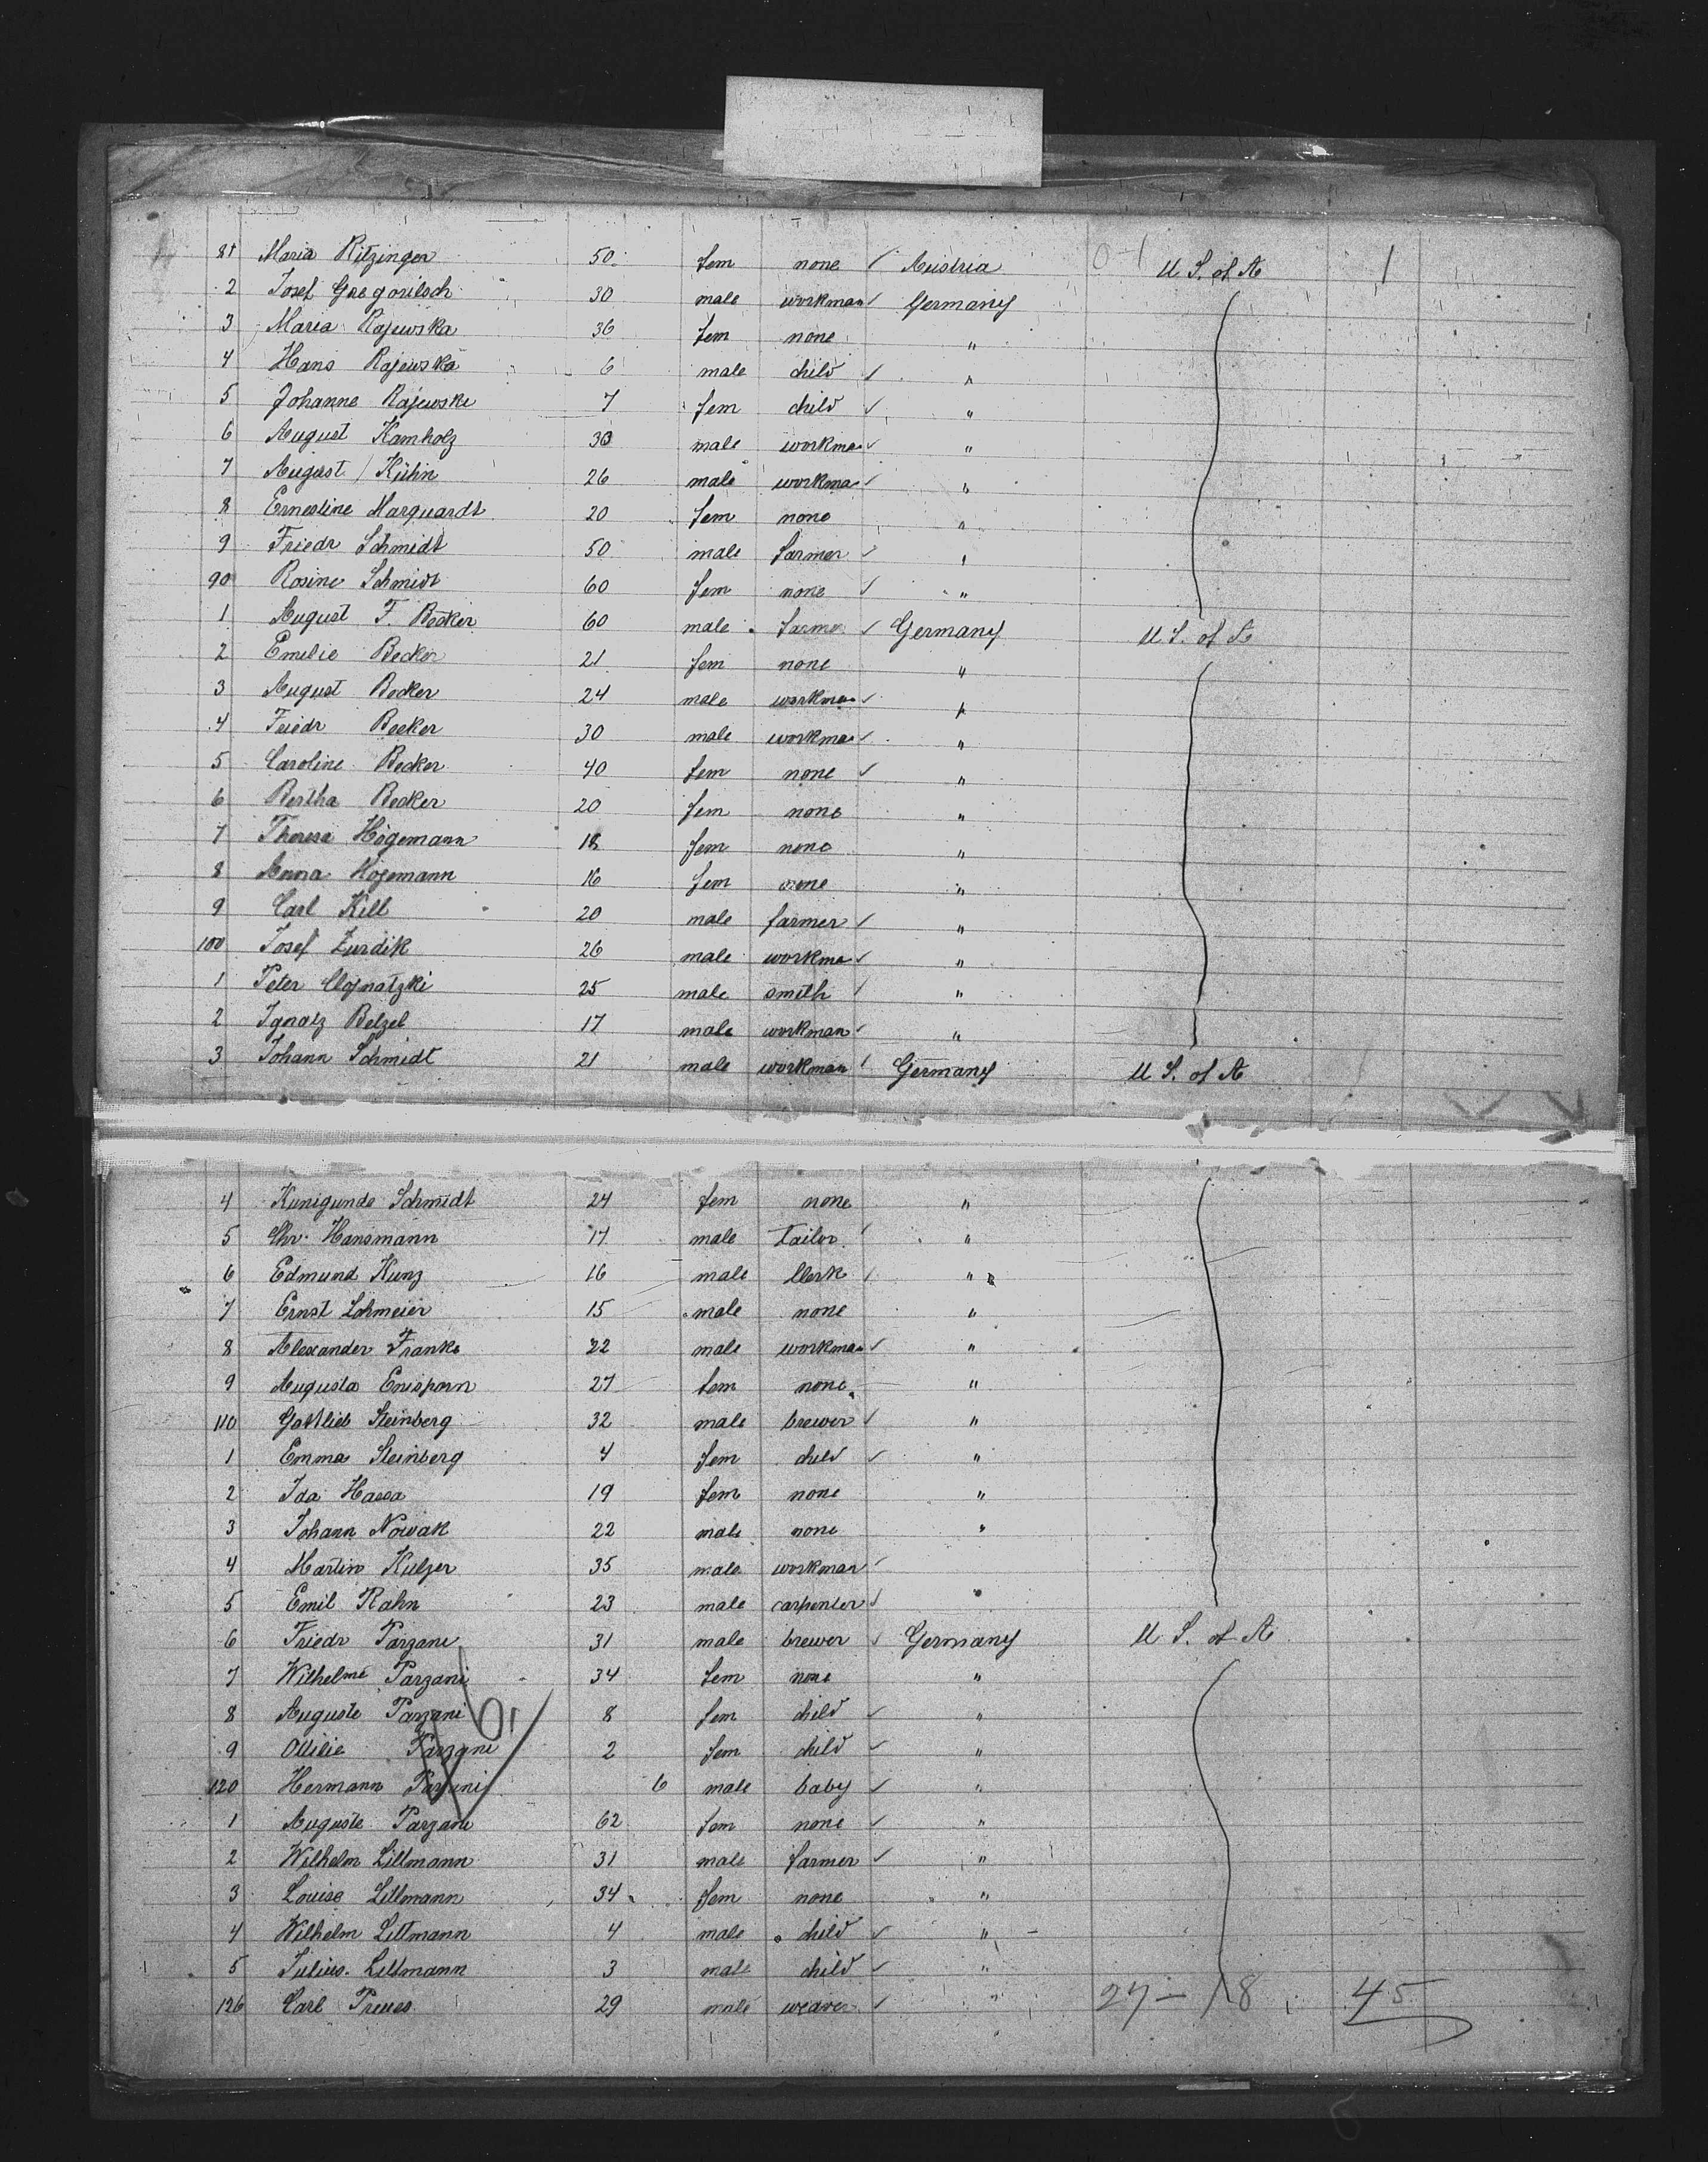 81 Maria Ritzinger 50 fem none Austria 0-1 U S. of A 1
2 Josef Gregoritsch 30 male workman Germany
3 Maria Rajewska 36 fem none "
4 Hans Rajewska 6 male child "
5 Johanne Rajewski 7 fem child "
6 August Kamholz 30 male workma "
7 August Kühn 26 male workma "
8 Ernestine Marquardt 20 fem none "
9 Friedr Schmidt 50 male farmer "
90 Rosine Schmidt 60 fem none "
1 August F. Becker 60 male farmer Germany U S. of A
2 Emilie Becker 21 fem none "
3 August Becker 24 male workman "
4 Friedr Becker 30 male workma "
5 Caroline Becker 40 fem none "
6 Bertha Becker 20 fem none "
7 Therese Högemann 18 fem none "
8 Anna Högemann 16 fem none "
9 Carl Kill 20 male farmer "
100 Josef Zurdik 26 male workma "
1 Peter 25 male smith "
2 Ignatz Belzel 17 male workman "
3 Johann Schmidt 21 male workman Germany U S. of A
4 Kunigunde Schmidt 24 fem none "
5 Chr. Hansmann 17 male Tailor "
6 Edmund Kunz 16 male Clerk "
7 Ernst Lohmeier 15 male none "
8 Alexander Franke 22 male workman "
9 Augusta 27 fem none "
110 Gottlieb Steinberg 32 male brewer "
1 Emma Steinberg 4 fem child "
2 Ida Hassa 19 fem none "
3 Johann Nowak 22 male none "
4 Martin Kulzer 35 male workman
5 Emil Rahn 23 male carpenter "
6 Friedr Parzani 31 male brewer Germany U S. of A
7 Wilhelme Parzani 34 fem none "
8 Auguste Parzani 8 fem child "
9 Ottilie Parzani 2 fem child "
120 Hermann Parzani 6 male baby "
1 Auguste Parzani 62 fem none "
2 Wilhelm Littmann 31 male farmer "
3 Louise Littmann 34 fem none "
4 Wilhelm Littmann 4 male child "
5 Julius Littmann 3 male child "
126 Carl Preuss 29 male weaver " 27 - 18 45